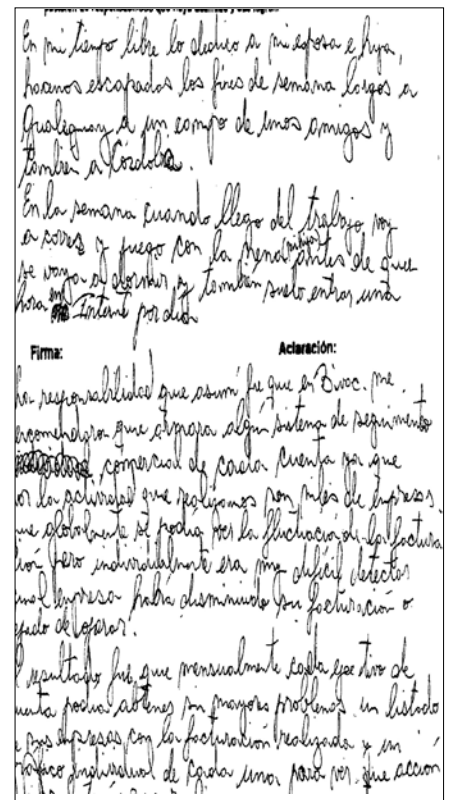 En mi tiempo libre lo dedico a mi esposa e hija,
hacemos escapadas los fines de semana largos a
Gualeguay a un campo de unos amigos y
tambien a Cordoba.
En la semana cuando llego del trabajo voy
a correr y juego con la nena (mi hija) antes de que
se vaya a dormir y tambien suelo entrar una
hora en Internet por dia
Firma: Aclaración:
responsabilidad que asumí fue que en Bivac. me
encomendaron que armara algún sistema de seguimiento
comercial de cada cuenta por que
por la actividad que realizamos son miles de empresas
que globalmente se podia ver la fluctuacion de la factura
ción pero individualmente era muy dificil detectar
cual empresa habia disminuido su facturación o
dejado de operar.
resultado fue que mensualmente cada ejecutivo de
cuenta podia obtener sin mayores problemas un listado
de sus empresas con la facturación realizada y un
gráfico individual de cada una para ver que accion